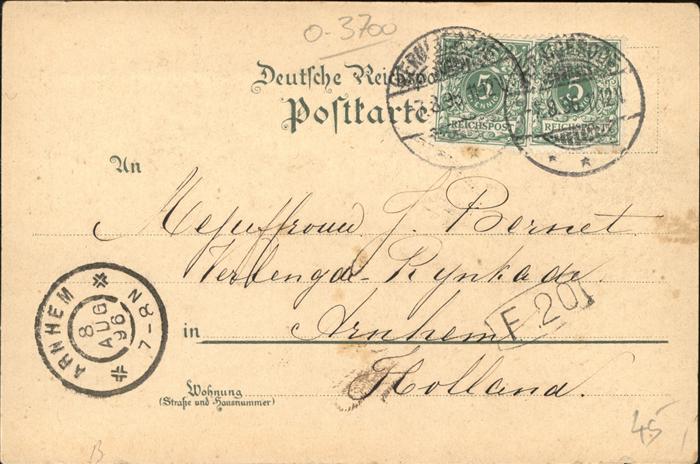 0-3700
Deutsche Reichspost
Postkarte
5 5
REICHSPOST REICHSPOST
An
Mejuffrouw J. Bernet
Verlengde Rynkade
in Arnhem
Holland.
F 201
ARNHEM
8 AUG 96
7-8 N
Wohnung
(Straße und Hausnummer)
45
B